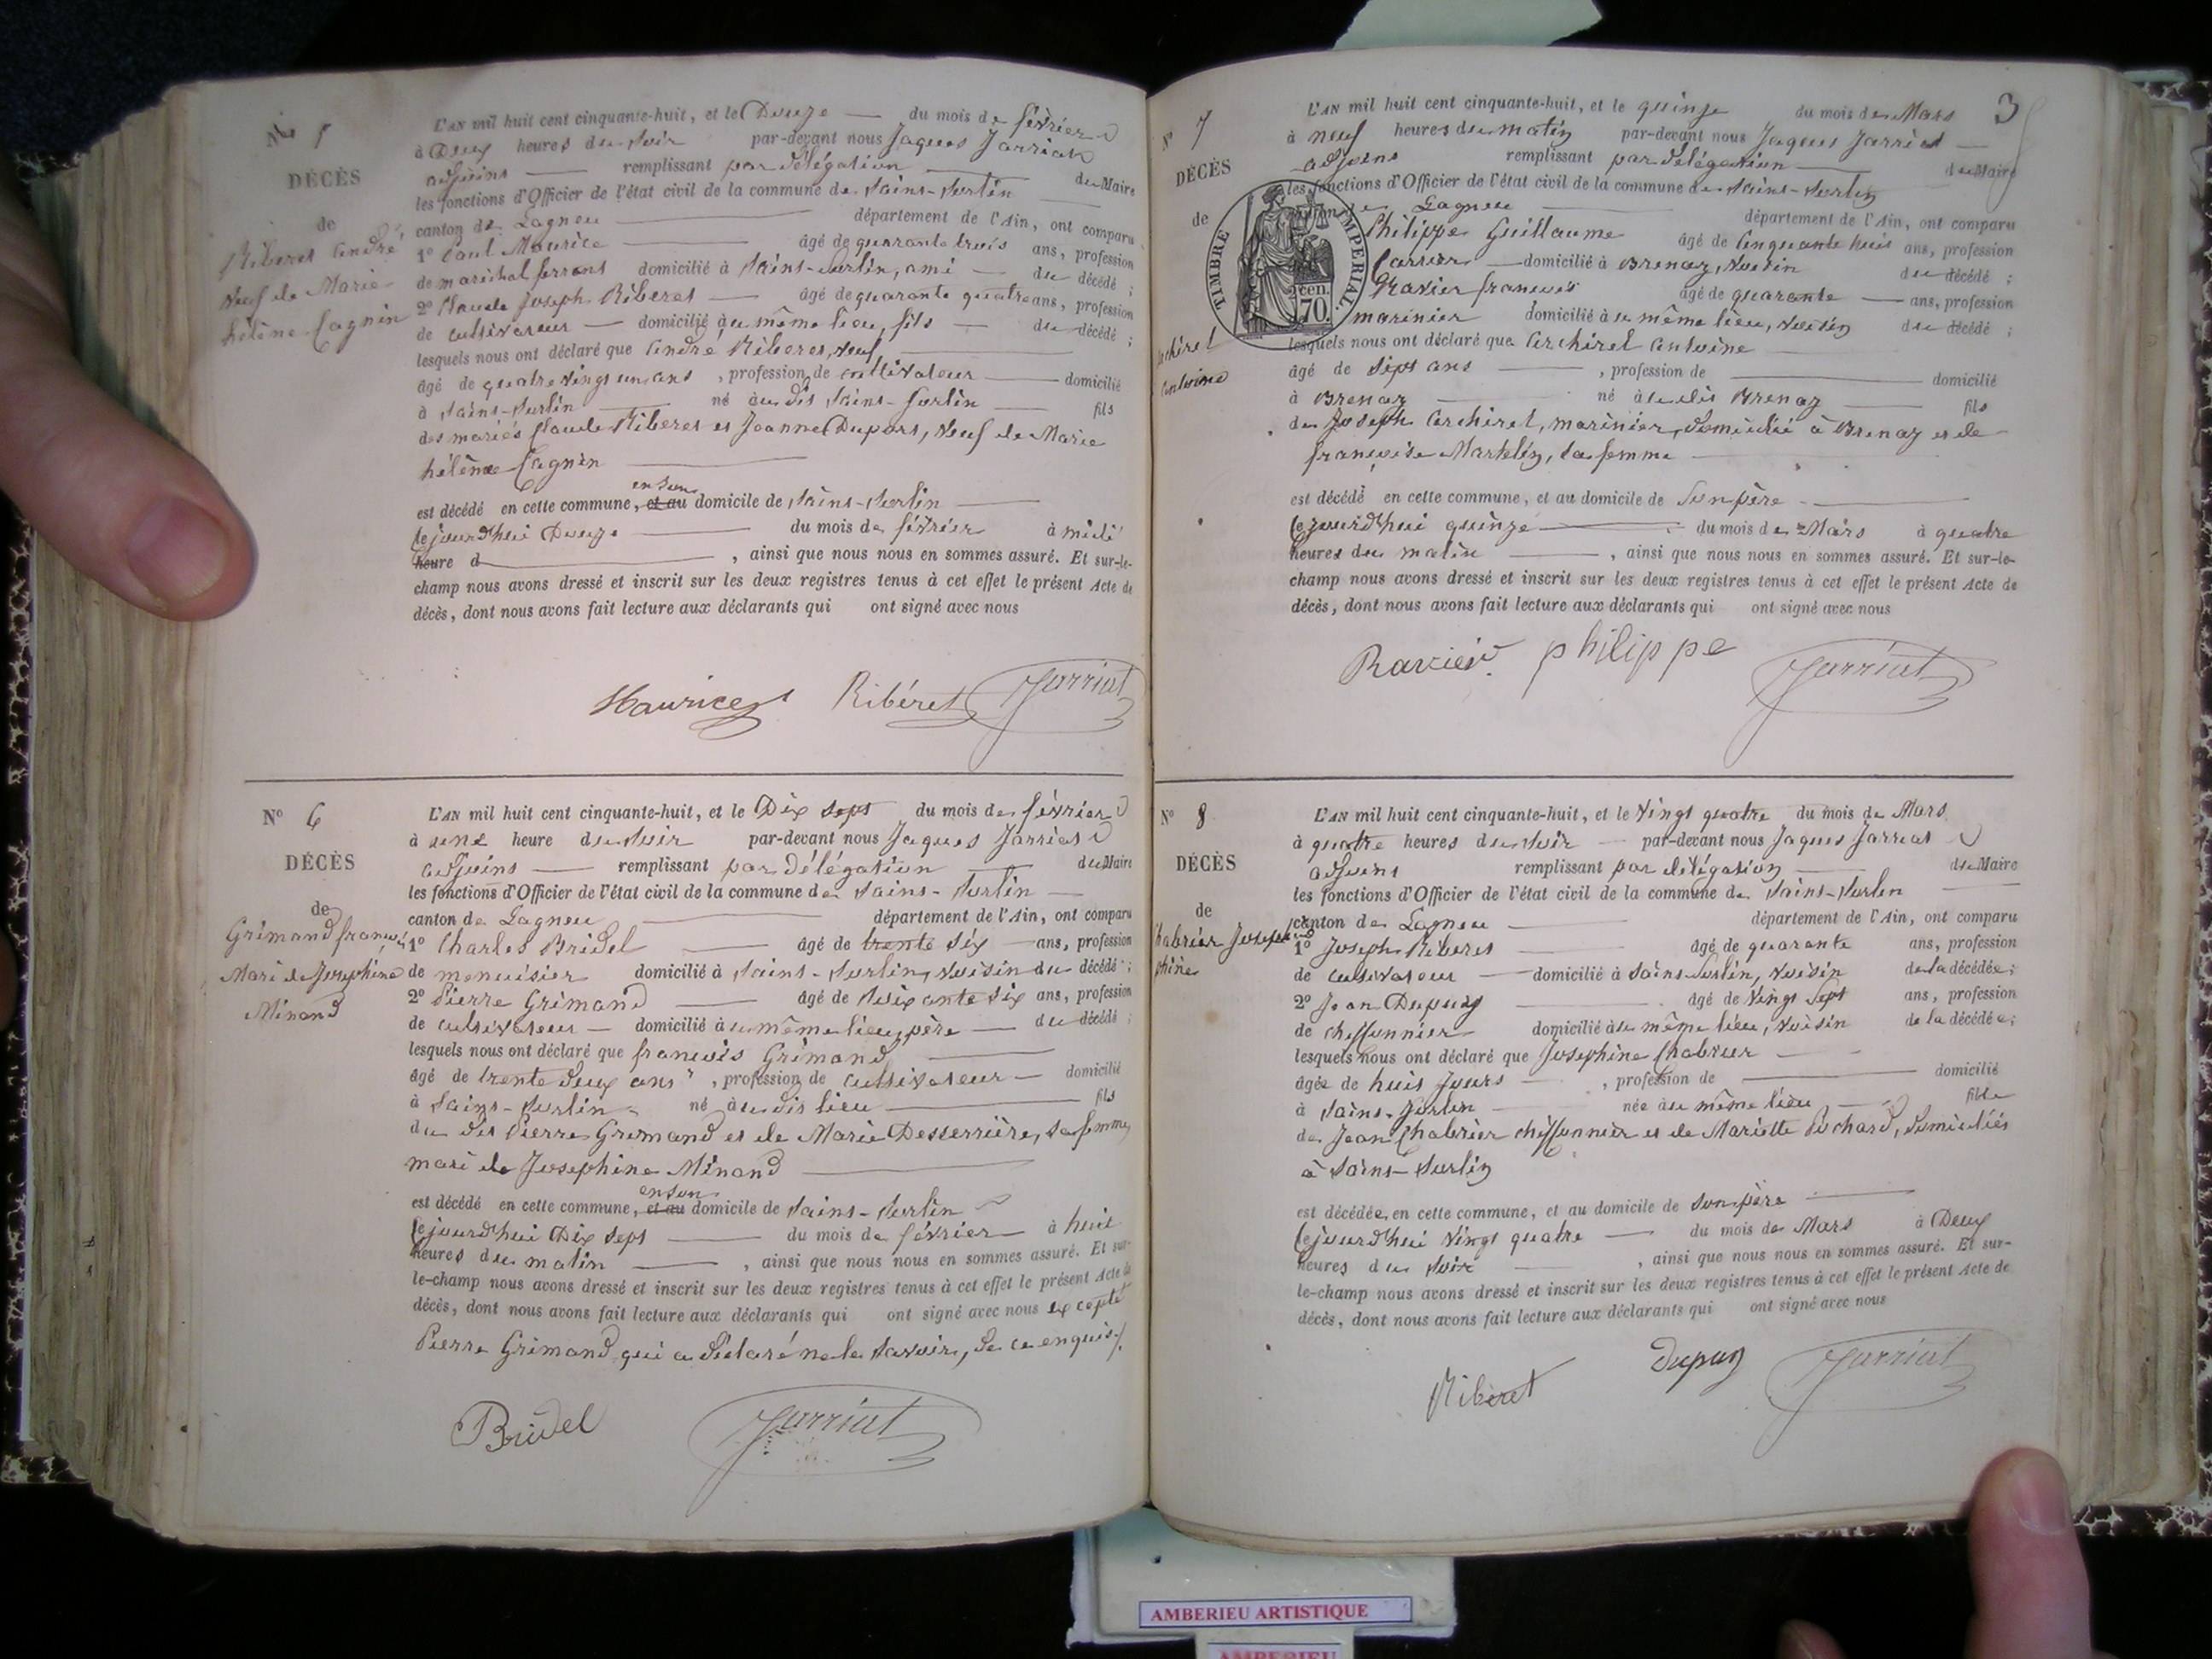 No 5
DÉCÈS
de
Riberet André
veuf de Marie
hélène Cagnin
L'AN mil huit cent cinquante-huit, et le Douze du mois de février
à Deux heures du soir par-devant nous Jaques Jarriat
adjoint remplissant par délégation du Maire
les fonctions d'Officier de l'état civil de la commune de Saint-Sorlin
canton de Lagneu département de l'Ain, ont comparu
1º Paul Maurice âgé de quarante trois ans, profession
de maréchal ferrant domicilié à Saint-Sorlin, ami du décédé ;
2º Claude Joseph Riberet âgé de quarante quatre ans, profession
de cultivateur domicilié au même lieu, fils du décédé ;
lesquels nous ont déclaré que André Riberet, veuf
âgé de quatre vingt un ans , profession de cultivateur domicilié
à Saint-Sorlin né au dit Saint-Sorlin fils
des mariés Claude Riberet et Jeanne Duport, veuf de Marie
hélène Cagnin
en son
est décédé en cette commune, et au domicile de Saint-Sorlin
cejourd'hui Douze du mois de février à midi
heure d , ainsi que nous nous en sommes assuré. Et sur-le-
champ nous avons dressé et inscrit sur les deux registres tenus à cet effet le présent Acte de
décès, dont nous avons fait lecture aux déclarants qui ont signé avec nous
Maurice Ribéret Jarriat
Nº 6
DÉCÈS
de
Grimand françois
Mari de Josephine
Minand
L'AN mil huit cent cinquante-huit, et le Dix sept du mois de février
à une heure du soir par-devant nous Jaques Jarriat
adjoint remplissant par délégation du Maire
les fonctions d'Officier de l'état civil de la commune de Saint-Sorlin
canton de Lagneu département de l'Ain, ont comparu
1º Charles Bridel âgé de trente six ans, profession
de menuisier domicilié à Saint-Sorlin, voisin du décédé ;
2º Pierre Grimand âgé de soixante six ans, profession
de cultivateur domicilié au même lieu, père du décédé ;
lesquels nous ont déclaré que françois Grimand
âgé de trente deux ans , profession de cultivateur domicilié
à Saint-Sorlin né au dit lieu fils
du dit Pierre Grimand et de Marie Desserrière, sa femme,
mari de Josephine Minand
en son
est décédé en cette commune, et au domicile de Saint-Sorlin
cejourd'hui Dix sept du mois de février à huit
heures du matin , ainsi que nous nous en sommes assuré. Et sur-
le-champ nous avons dressé et inscrit sur les deux registres tenus à cet effet le présent Acte de
décès, dont nous avons fait lecture aux déclarants qui ont signé avec nous excepté
Pierre Grimand qui a déclaré ne le savoir, de ce enquis
Bridel Jarriat
3
Nº 7
DÉCÈS
de
Archiret
Antoine
L'AN mil huit cent cinquante-huit, et le quinze du mois de Mars
à neuf heures du matin par-devant nous Jaques Jarriat
adjoint remplissant par délégation du Maire
les fonctions d'Officier de l'état civil de la commune de Saint-Sorlin
Lagneu département de l'Ain, ont comparu
Philippe Guillaume âgé de Cinquante huit ans, profession
Carrier domicilié à Brenaz, voisin du décédé ;
Ravier françois âgé de quarante ans, profession
marinier domicilié au même lieu, voisin du décédé ;
TIMBRE IMPERIAL
cen.
70.
lesquels nous ont déclaré que Archiret Antoine
âgé de Sept ans , profession de domicilié
à Brenaz né au dit Brenaz fils
de Joseph Archiret, marinier, domicilié à Brenaz et de
françoise Martelin, sa femme
est décédé en cette commune, et au domicile de Son père
cejourd'hui quinze du mois de Mars à quatre
heures du matin , ainsi que nous nous en sommes assuré. Et sur-le-
champ nous avons dressé et inscrit sur les deux registres tenus à cet effet le présent Acte de
décès, dont nous avons fait lecture aux déclarants qui ont signé avec nous
Ravier philippe Jarriat
Nº 8
DÉCÈS
de
Chabrier Jose
phine
L'AN mil huit cent cinquante-huit, et le vingt quatre du mois de Mars
à quatre heures du soir par-devant nous Jaques Jarriat
adjoint remplissant par délégation du Maire
les fonctions d'Officier de l'état civil de la commune de Saint-Sorlin
canton de Lagneu département de l'Ain, ont comparu
1º Joseph Riberet âgé de quarante ans, profession
de cultivateur domicilié à Saint-Sorlin, voisin de la décédée ;
2º Jean Dupuy âgé de vingt sept ans, profession
de chiffonnier domicilié au même lieu, voisin de la décédée ;
lesquels nous ont déclaré que Josephine Chabrier
âgée de huit Jours , profession de domicilié
à Saint-Sorlin née au même lieu fille
de Jean Chabrier chiffonnier et de Mariette Pochard, domiciliés
à Saint-Sorlin
est décédée, en cette commune, et au domicile de son père
cejourd'hui vingt quatre du mois de Mars à Deux
heures du soir , ainsi que nous nous en sommes assuré. Et sur-
le-champ nous avons dressé et inscrit sur les deux registres tenus à cet effet le présent Acte de
décès, dont nous avons fait lecture aux déclarants qui ont signé avec nous
Ribéret Dupuy Jarriat
AMBERIEU ARTISTIQUE
AMBERIEU